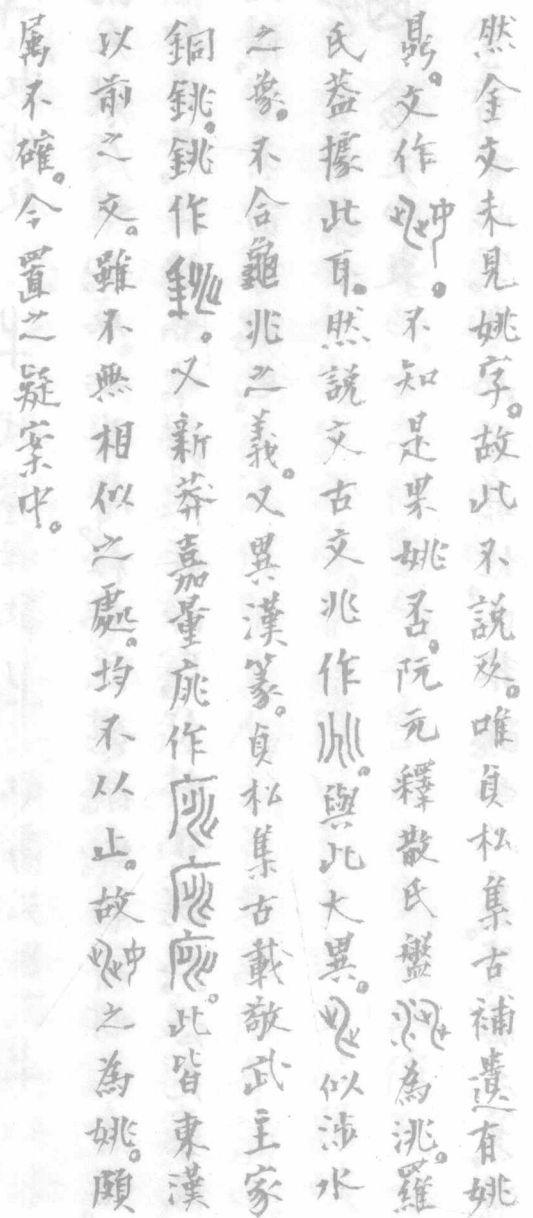 然金文未見姚字。故此不說及。唯貞松集古補遺有姚
鼎。文作。不知是果姚否。阮元釋散氏盤為洮。羅
氏葢據此耳。然說文古文兆作。與此大異。似涉水
之象。不合龜兆之義。又異漢篆。貞松集古載敬武主家
銅銚。銚作。又新莽嘉量庣作。此皆東漢
以前之文。雖不無相似之處。均不从止。故之為姚。頗
屬不確。今置之疑案中。